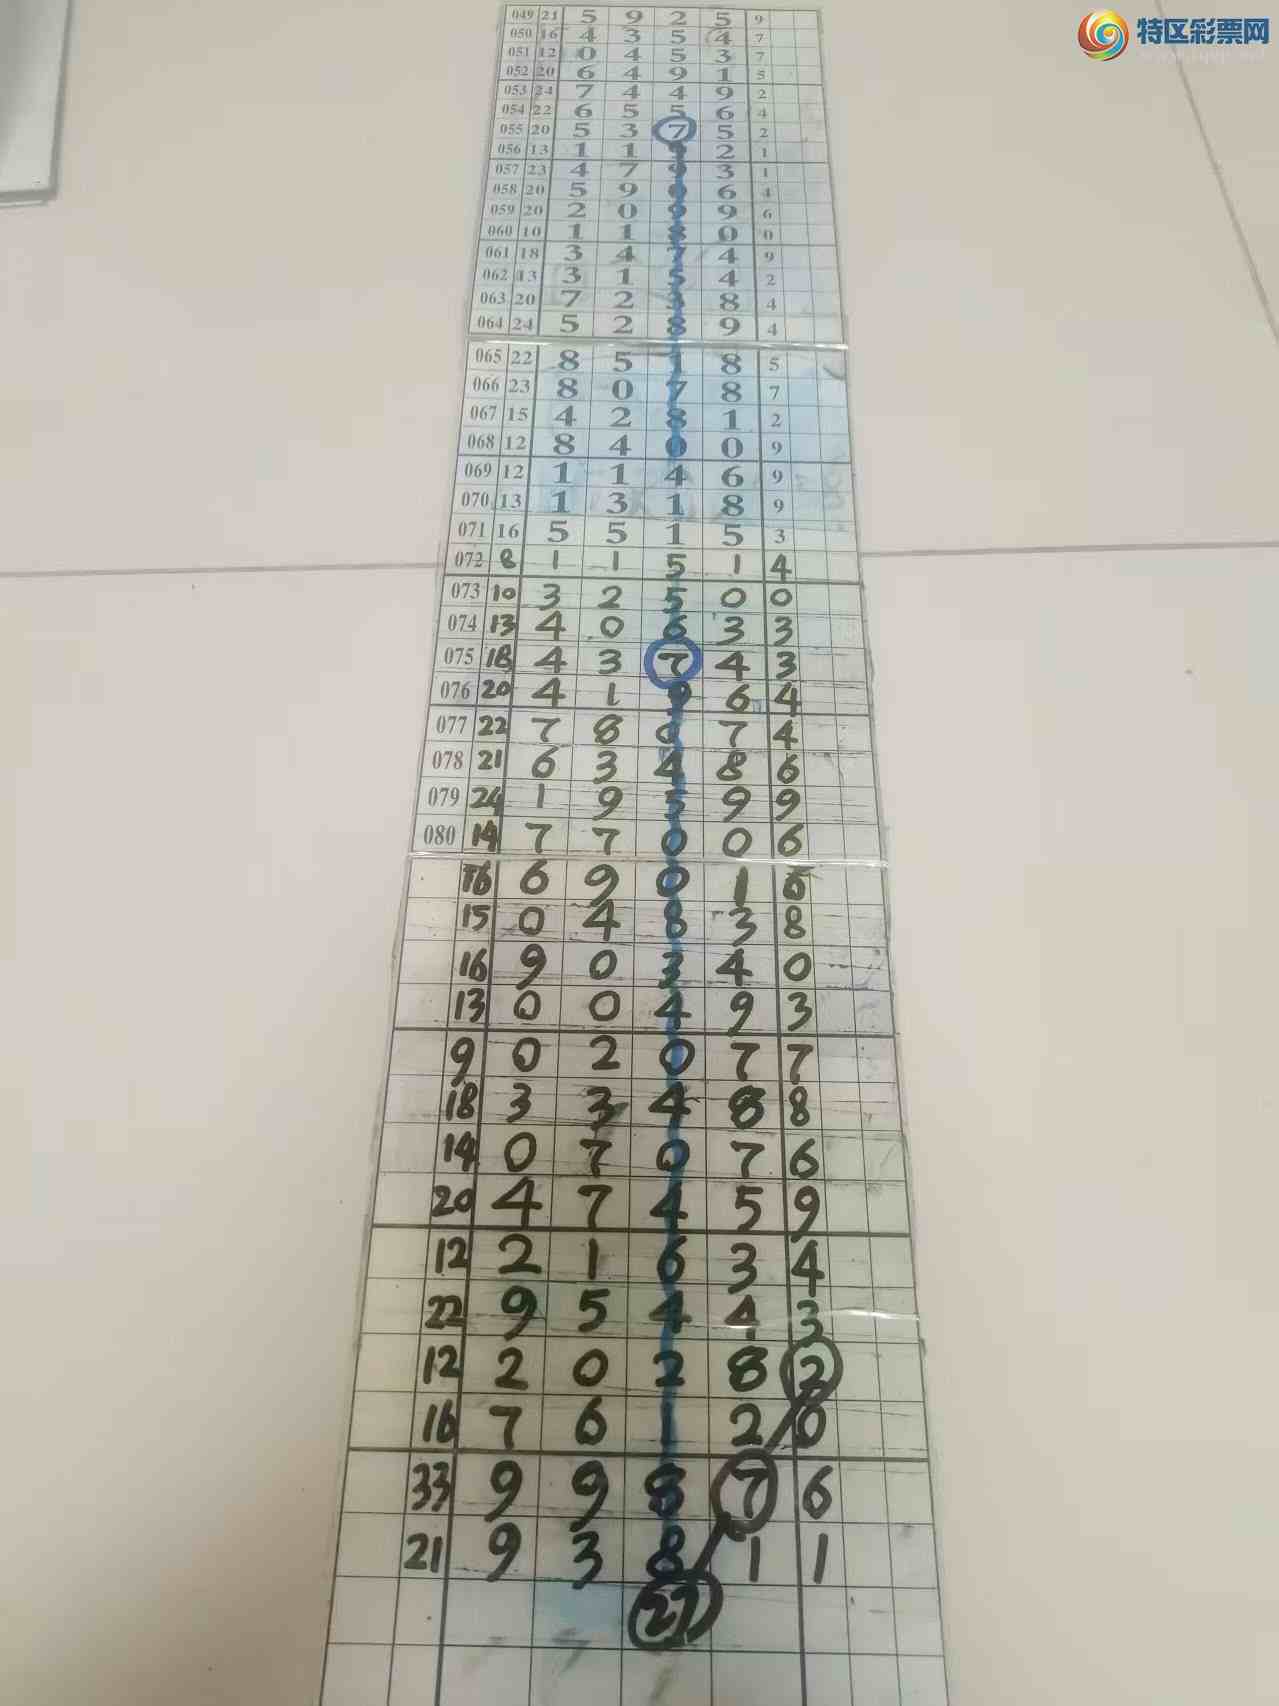 特区彩票网
049 21 5 9 2 5 9
050 16 4 3 5 4 7
051 12 0 4 5 3 7
052 20 6 4 9 1 5
053 24 7 4 4 9 2
054 22 6 5 5 6 4
055 20 5 3 7 5 2
056 13 1 1 9 2 1
057 23 4 7 9 3 1
058 20 5 9 0 6 4
059 20 2 0 9 9 6
060 10 1 1 8 0 0
061 18 3 4 7 4 9
062 13 3 1 5 4 2
063 20 7 2 3 8 4
064 24 5 2 8 9 4
065 22 8 5 1 8 5
066 23 8 0 7 8 7
067 15 4 2 8 1 2
068 12 8 4 0 0 9
069 12 1 1 4 6 9
070 13 1 3 1 8 9
071 16 5 5 1 5 3
072 8 1 1 5 1 4
073 10 3 2 5 0 0
074 13 4 0 6 3 3
075 18 4 3 7 4 3
076 20 4 1 9 6 4
077 22 7 8 0 7 4
078 21 6 3 4 8 6
079 24 1 9 5 9 9
080 14 7 7 0 0 6
16 6 9 0 1 6
15 0 4 8 3 8
16 9 0 3 4 0
13 0 0 4 9 3
9 0 2 0 7 7
18 3 3 4 8 8
14 0 7 0 7 6
20 4 7 4 5 9
12 2 1 6 3 4
22 9 5 4 4 3
12 2 0 2 8 2
16 7 6 1 2 0
33 9 9 8 7 6
21 9 3 8 1 1
27